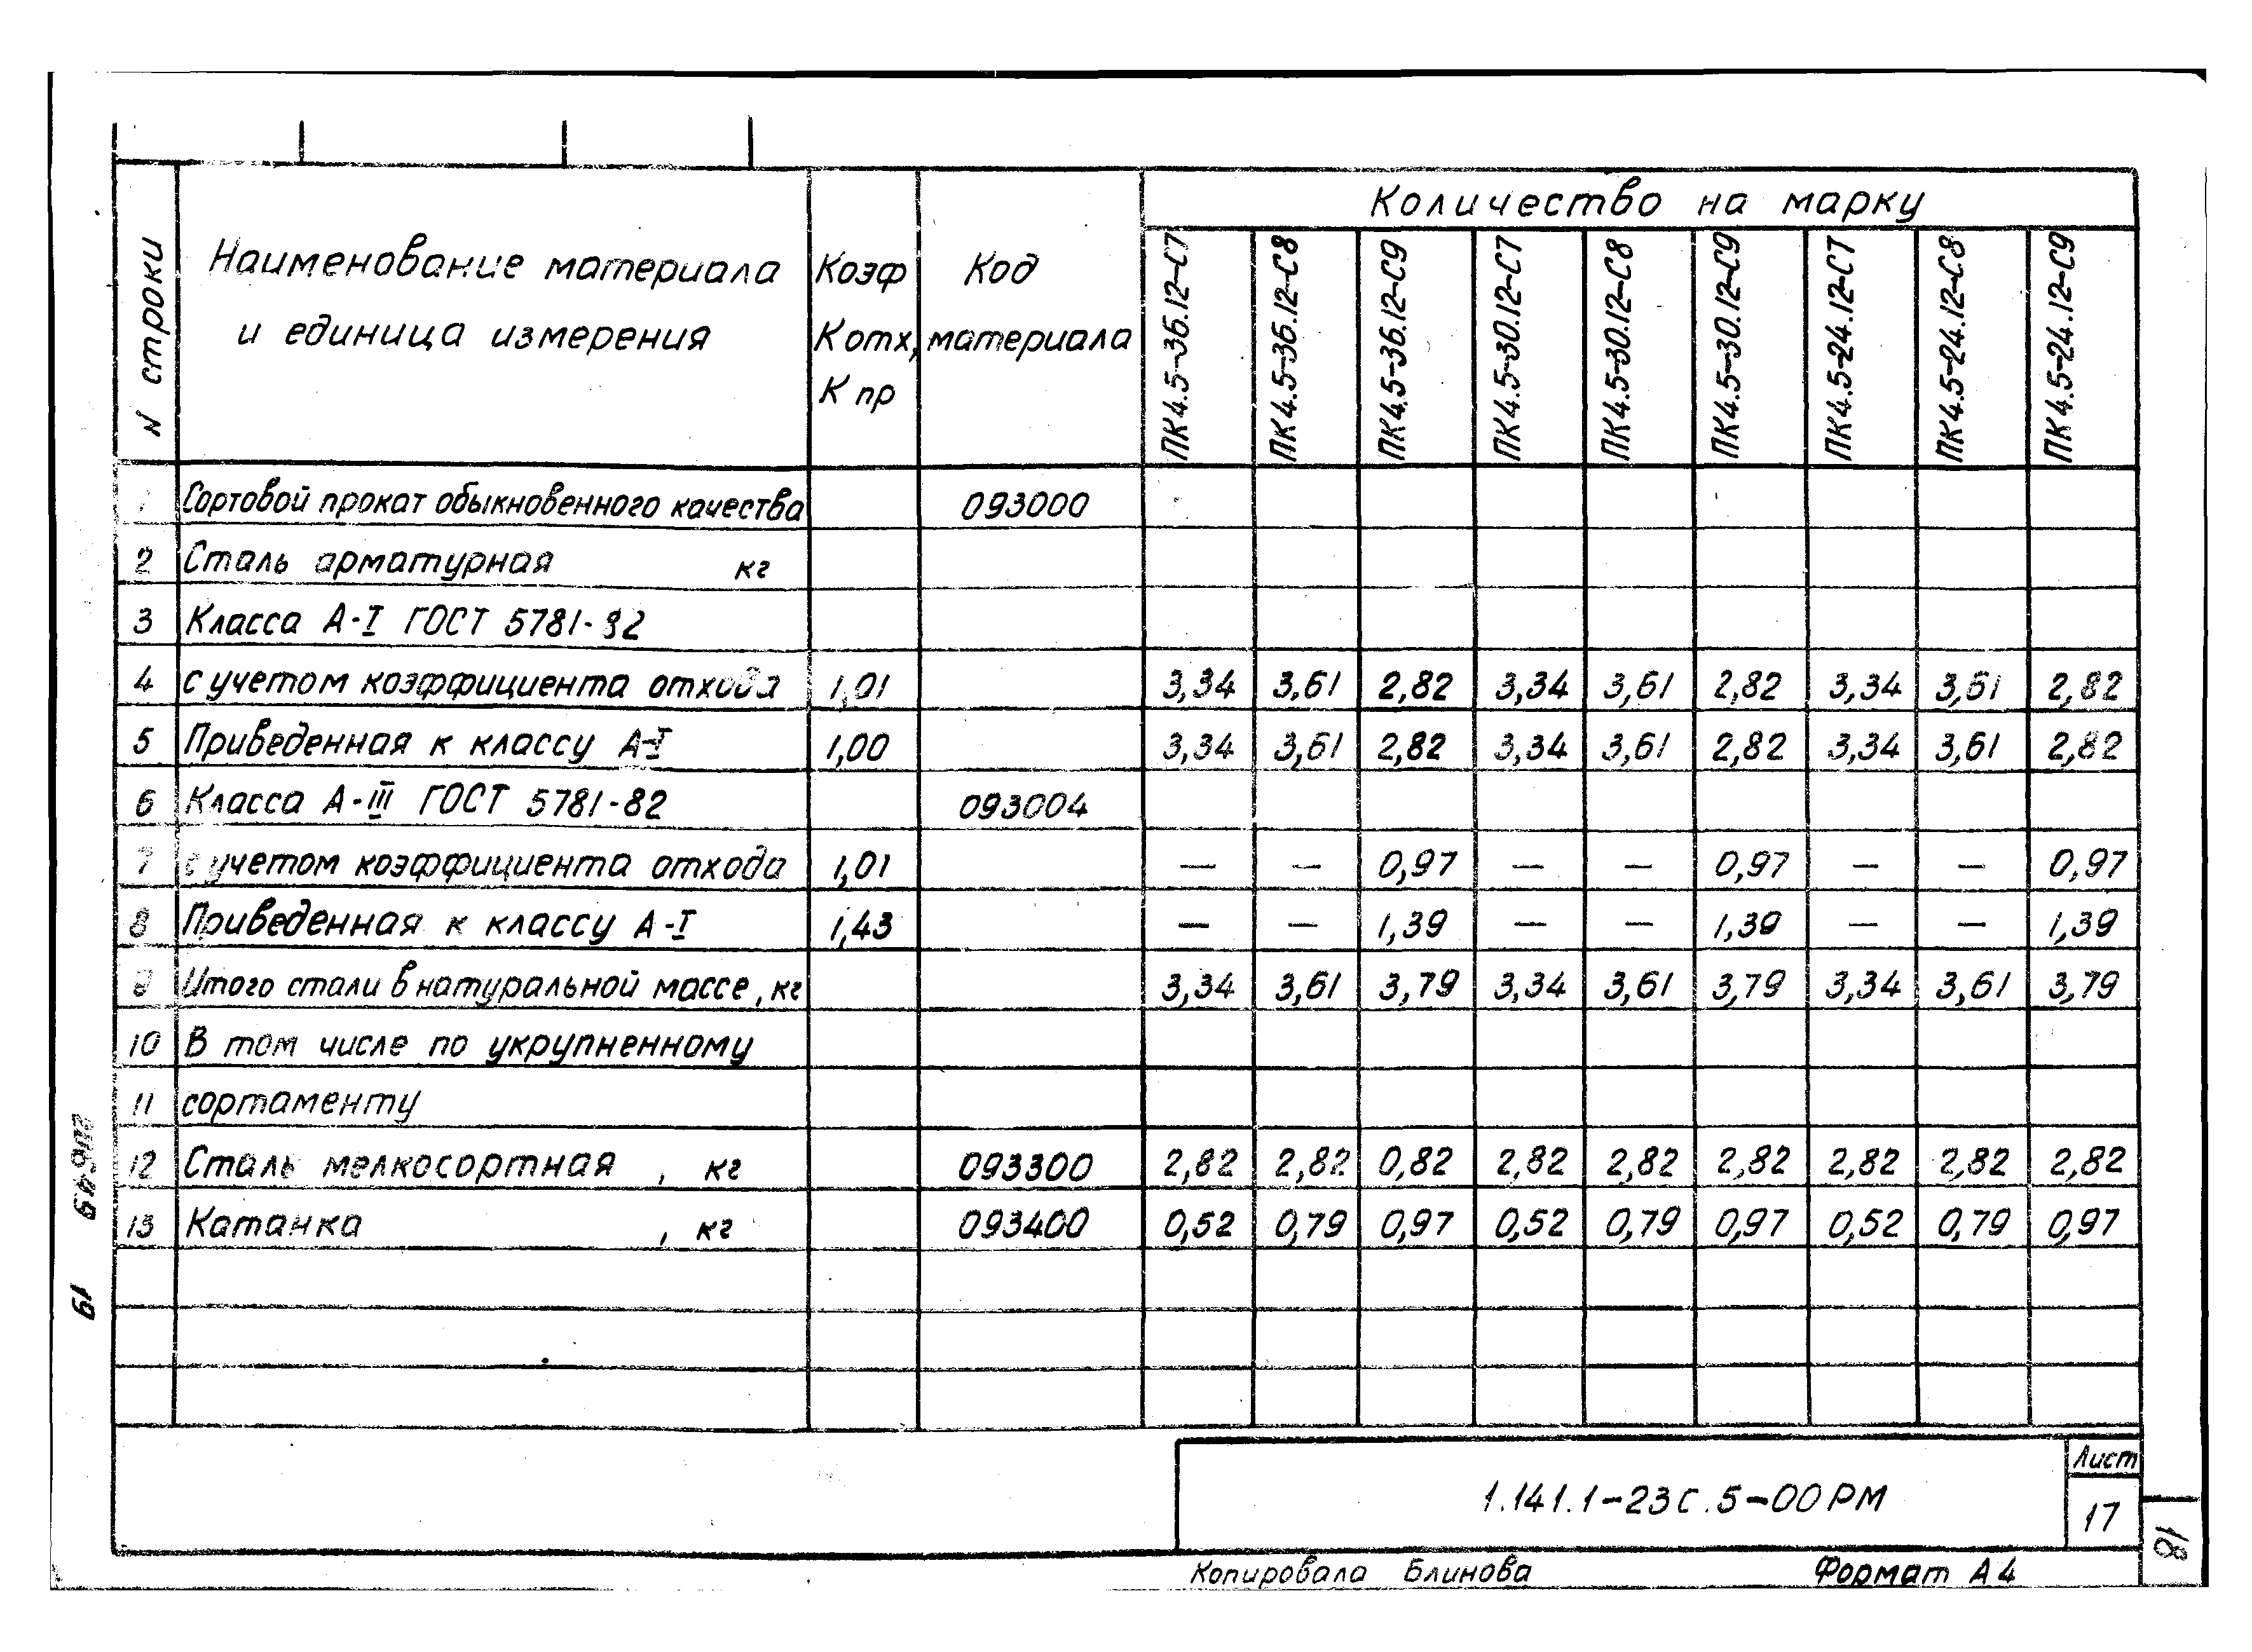 Количество на марку
N строки
Наименование материала
и единица измерения
Коэф
К отх,
К пр
Код
материала
ПК4.5-36.12-С7
ПК4.5-36.12-С8
ПК4.5-36.12-С9
ПК4.5-30.12-С7
ПК4.5-30.12-С8
ПК4.5-30.12-С9
ПК4.5-24.12-С7
ПК4.5-24.12-С8
ПК4.5-24.12-С9
1 Сортовой прокат обыкновенного качества 093000
2 Сталь арматурная кг
3 Класса А-I ГОСТ 5781-82
4 с учетом коэффициента отхода 1,01 3,34 3,61 2,82 3,34 3,61 2,82 3,34 3,61 2,82
5 Приведенная к классу А-I 1,00 3,34 3,61 2,82 3,34 3,61 2,82 3,34 3,61 2,82
6 Класса А-III ГОСТ 5781-82 093004
7 с учетом коэффициента отхода 1,01 — — 0,97 — — 0,97 — — 0,97
8 Приведенная к классу А-I 1,43 — — 1,39 — — 1,39 — — 1,39
9 Итого стали в натуральной массе, кг 3,34 3,61 3,79 3,34 3,61 3,79 3,34 3,61 3,79
10 В том числе по укрупненному
11 сортаменту
12 Сталь мелкосортная , кг 093300 2,82 2,82 0,82 2,82 2,82 2,82 2,82 2,82 2,82
13 Катанка , кг 093400 0,52 0,79 0,97 0,52 0,79 0,97 0,52 0,79 0,97
19
1.141.1-23С.5-00РМ
Лист
17
18
Копировала Блинова
Формат А4